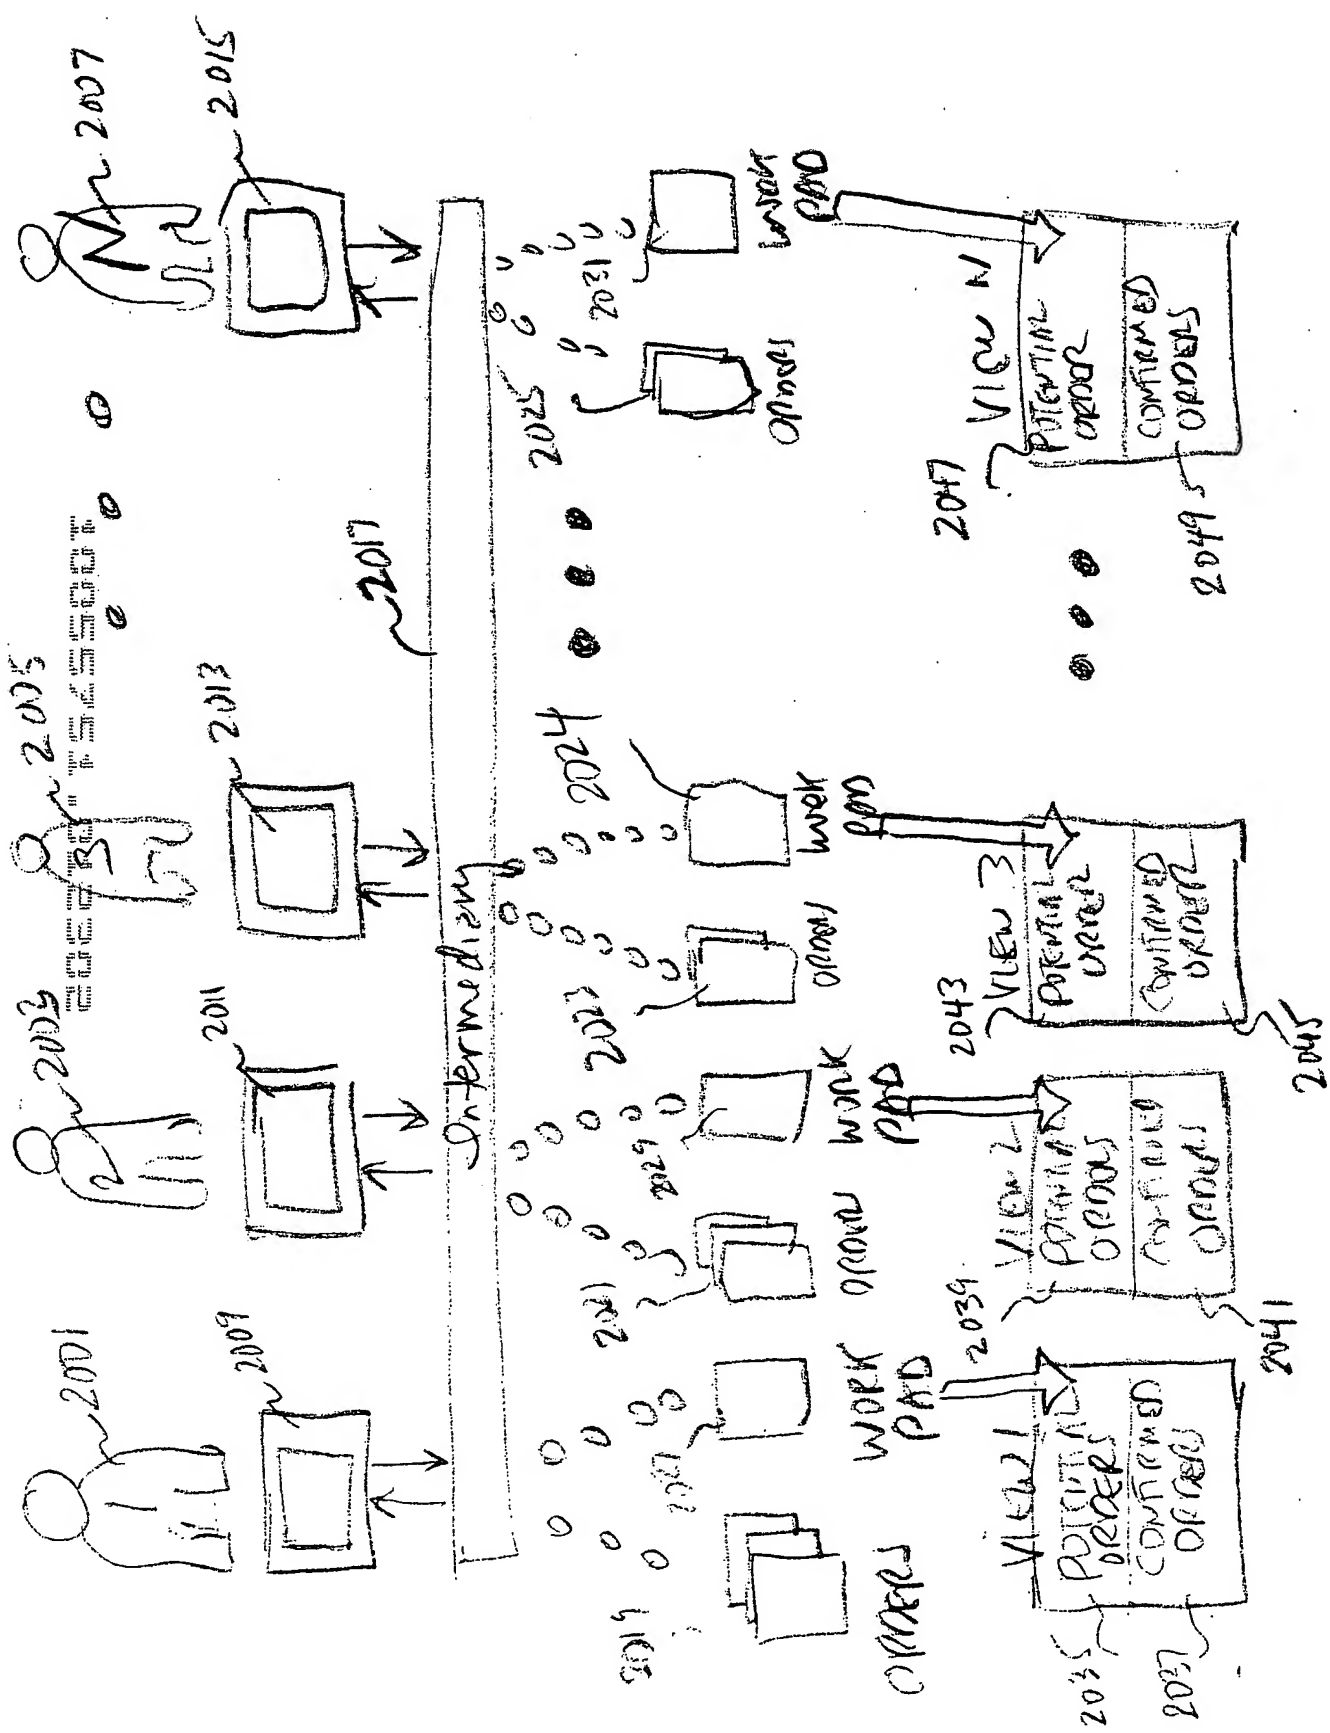 2001
2003
2005
2007
1
2
3
N
2009
2011
2013
2015
2017
Intermediary
2019
2027
2021
2029
2023
2024
2025
2031
ORDERS
WORK
PAD
ORDERS
WORK
PAD
ORDERS
WORK
PAD
ORDERS
WORK
PAD
VIEW 1
2035
POTENTIAL
ORDERS
2037
CONFIRMED
ORDERS
2039
VIEW 2
POTENTIAL
ORDERS
CONFIRMED
ORDERS
2041
2043
VIEW 3
POTENTIAL
ORDER
CONFIRMED
ORDER
2045
2047
VIEW N
POTENTIAL
ORDER
CONFIRMED
ORDERS
2049